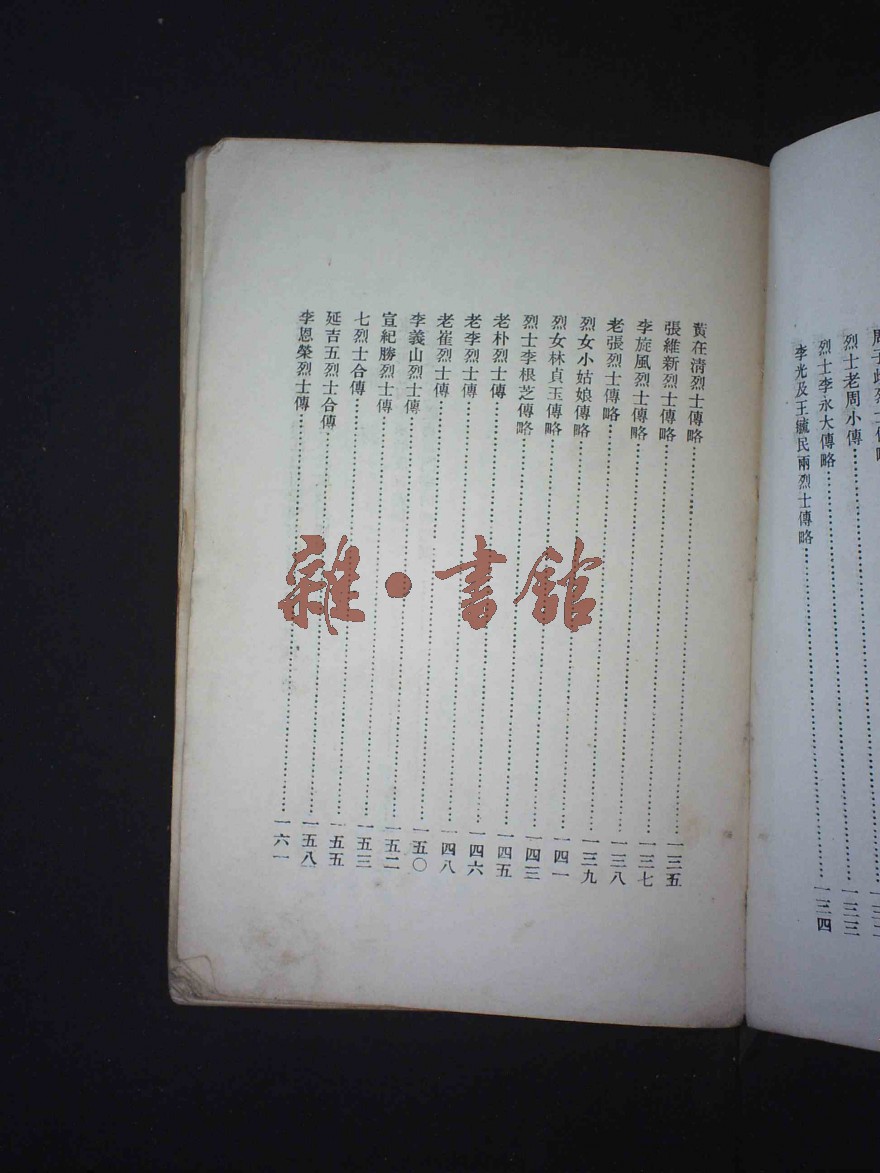 烈士老周小傳
烈士李永大傳略……一三三
李光及王毓民兩烈士傳略……一三四
黃在清烈士傳略……一三五
張維新烈士傳略……一三七
李旋風烈士傳略……一三八
老張烈士傳略……一三九
烈女小姑娘傳略……一四一
烈女林貞玉傳略……一四三
烈士李根芝傳略……一四五
老朴烈士傳……一四六
老李烈士傳……一四八
老崔烈士傳……一五〇
李義山烈士傳……一五二
宣紀勝烈士傳……一五三
七烈士合傳……一五五
延吉五烈士合傳……一五八
李恩榮烈士傳……一六一
雜·書館